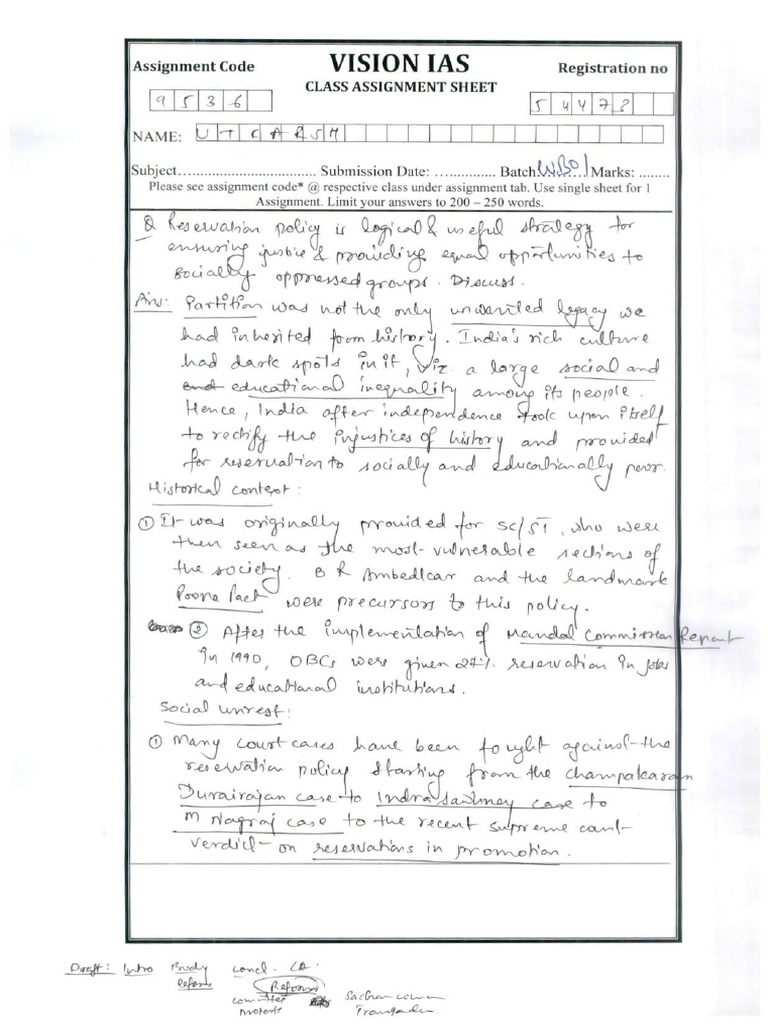 VISION IAS
Assignment Code
Registration no
CLASS ASSIGNMENT SHEET
9 5 3 6
5 4 4 7 8
NAME: U T C A R S H
Subject.................................. Submission Date: .............. Batch WB01 Marks: ........
Please see assignment code* @ respective class under assignment tab. Use single sheet for 1
Assignment. Limit your answers to 200 – 250 words.
Q Reservation policy is logical & useful strategy for
ensuring justice & providing equal opportunities to
socially oppressed groups. Discuss.
Ans: Partition was not the only unwanted legacy we
had inherited from history. India's rich culture
had dark spots in it, viz a large social and
and educational inequality among its people.
Hence, India after independence took upon itself
to rectify the injustices of history and provided
for reservation to socially and educationally poor.
Historical context:
① It was originally provided for SC/ST, who were
then seen as the most vulnerable sections of
the society. B R Ambedkar and the landmark
Poona Pact were precursors to this policy.
② After the implementation of Mandal Commission Report
in 1990, OBCs were given 27% reservation in jobs
and educational institutions.
Social unrest:
① Many court cases have been fought against the
reservation policy starting from the champakaran
Durairajan case to Indra Sawhney case to
M Nagraj case to the recent supreme court
verdict on reservations in promotion.
Draft: Intro Body concl. CA.
Reforms
committee Sachar comm
Protests